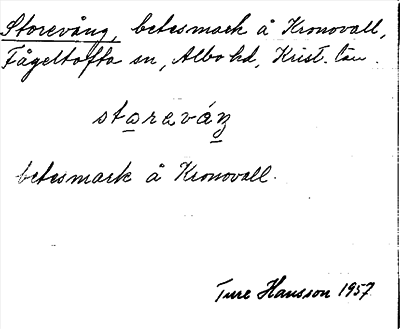 Storevång, betesmark å Kronovall,
Fågeltofta sn, Albo hd, Krist. län.
storeváŋ
betesmark å Kronovall.
Ture Hansson 1957